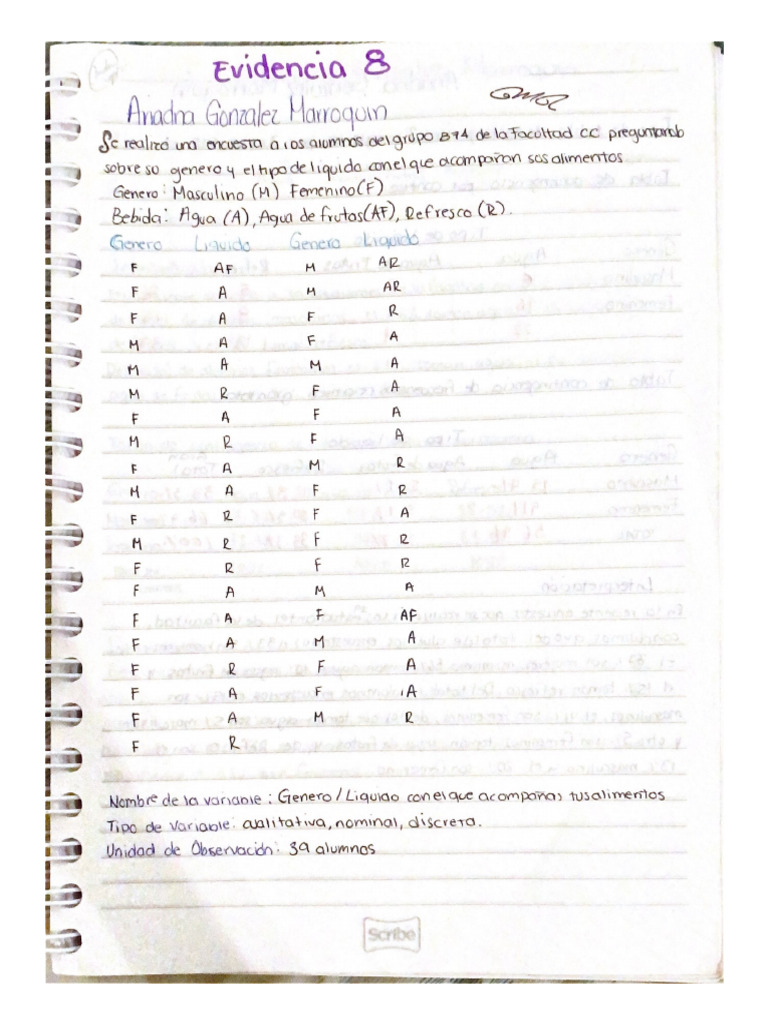 Evidencia 8
Ariadna Gonzalez Marroquin
Se realizó una encuesta a los alumnos del grupo 874 de la Facultad CC preguntando
sobre su genero y el tipo de liquido con el que acompañan sus alimentos.
Genero: Masculino (M) Femenino (F)
Bebida: Agua (A), Agua de frutas (AF), Refresco (R).
Genero Liquido Genero Liquido
F AF M AR
F A M AR
F A F R
M A F A
M A M A
M R F A
F A F A
M R F A
F A M R
M A F R
F R F A
M R F R
F R F R
F A M A
F A F AF
F A M A
F R F A
F A F A
F A M R
F R
Nombre de la variable: Genero / Liquido con el que acompañas tus alimentos
Tipo de Variable: cualitativa, nominal, discreta.
Unidad de Observación: 39 alumnos
Scribe